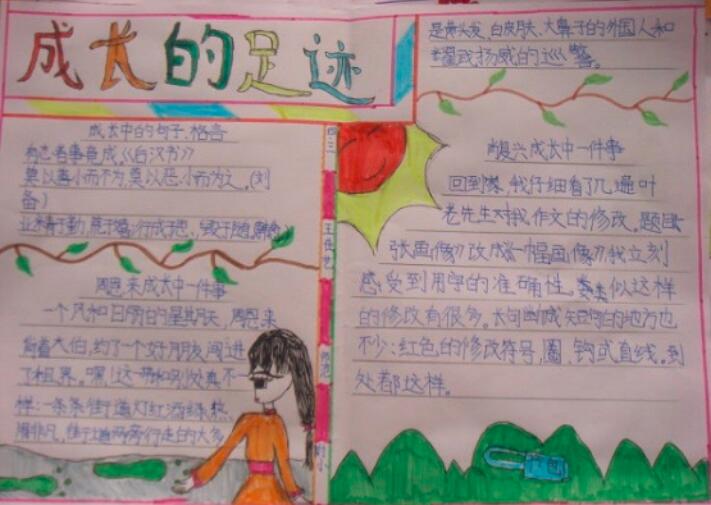 成长的足迹
成长中的句子、格言
有志者事竟成《后汉书》
莫以善小而不为，莫以恶小而为之。（刘
备）
业精于勤，荒于嬉；行成于思，毁于随。（韩愈）
周恩来成长中一件事
一个风和日丽的星期天，周恩来
背着大伯，约了一个好朋友闯进
了租界。嘿！这一带和别处真不一
样：一条条街道灯红酒绿，热
闹非凡，街道两旁行走的大多
四三
王
艺
师范
附小
是黄头发、白皮肤、大鼻子的外国人和
耀武扬威的巡警。
肖复兴成长中一件事
回到家，我仔细看了几遍叶
老先生对我作文的修改。题目《一
张画像》改成《一幅画像》，我立刻
感受到用字的准确性。类似这样
的修改有很多。长句断成短句的地方也
不少：红色的修改符号，圈、钩或直线。到
处都这样。